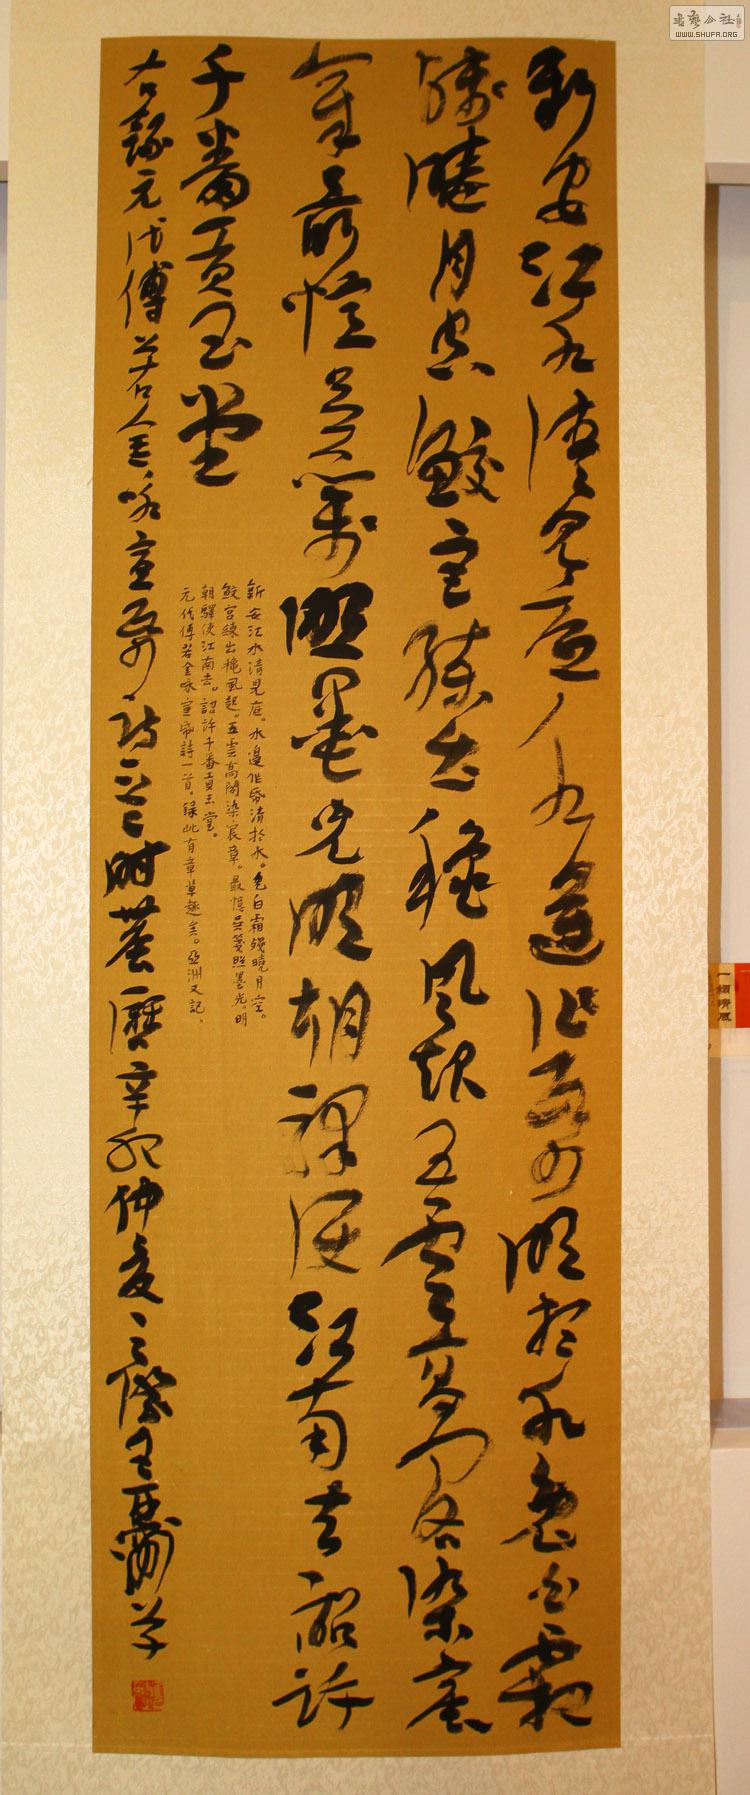 新安江水清見底水邊作帋明於水色白霜
殘曉月空鮫宮練出穐風起五雲高閣染宸
章最憶吳箋照墨光明朝驛使江南去詔許
千番貢玉堂
新安江水清見底。水邊作帋清於水。色白霜殘曉月空。
鮫宮練出穐風起。五雲高閣染宸章。最憶吳箋照墨光。明
朝驛使江南去。詔許千番貢玉堂。
元代傅若金咏宣帋詩一首。錄此有章草趣矣。亞洲又記。
右錄元代傅若金咏宣帋詩一首時農曆辛卯仲夏之際王亞洲草
書藝公社
WWW.SHUFA.ORG